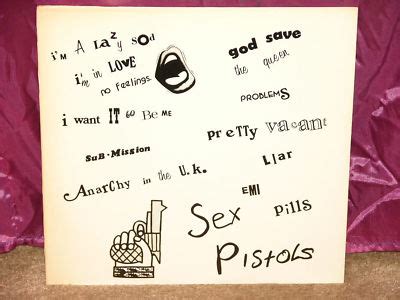 i'm A LAzy SOd
i'm in LOVE
no feelings
i want IT to Be ME
SuB-Mission
Anarchy in the U.k.
god save
the queen
PROBLEMS
pretty vacant
LIar
EMI
pills
Sex
PistoLs